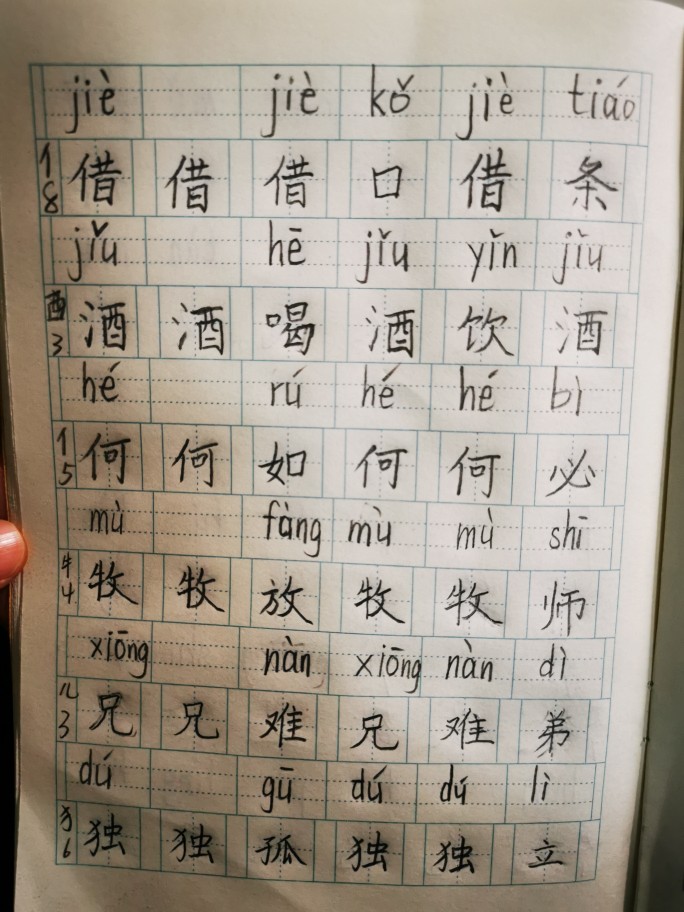 jiè jiè kǒ jiè tiáo
亻8 借 借 借 口 借 条
jǐu hē jǐu yǐn jǐu
酉3 酒 酒 喝 酒 饮 酒
hé rú hé hé bì
亻5 何 何 如 何 何 必
mù fàng mù mù shī
牜4 牧 牧 放 牧 牧 师
xiōng nàn xiōng nàn dì
儿3 兄 兄 难 兄 难 弟
dú gū dú dú lì
犭6 独 独 孤 独 独 立